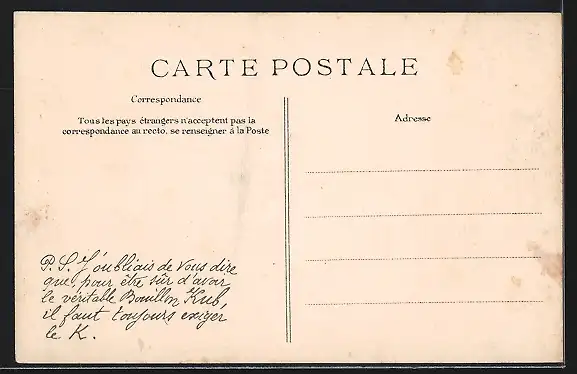 CARTE POSTALE
Correspondance
Tous les pays étrangers n'acceptent pas la
correspondance au recto, se renseigner à la Poste
Adresse
P.S. J'oubliais de vous dire
que, pour être sûr d'avoir
le véritable Bouillon Kub,
il faut toujours exiger
le K.